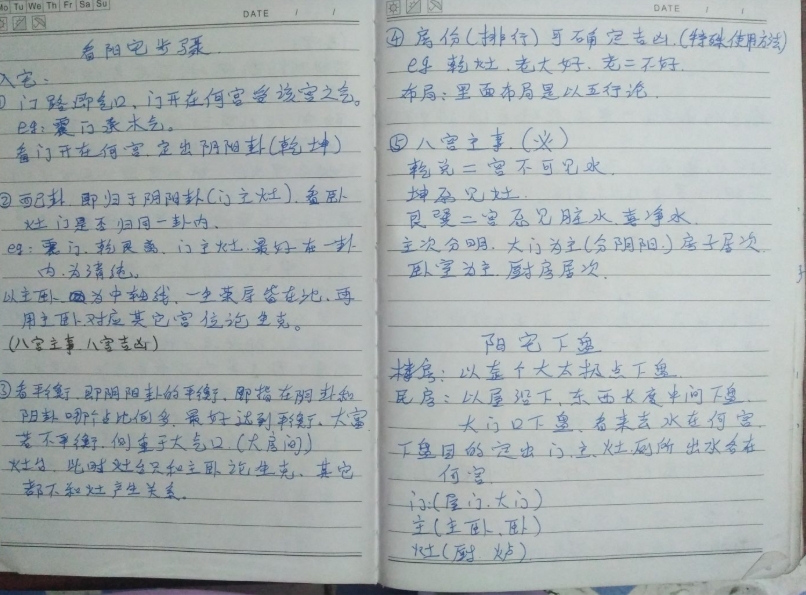 Mo Tu We Th Fr Sa Su
DATE / /
看阳宅步骤
入宅:
① 门路即气口,门开在何宫受该宫之气。
eg:震门乘木气。
看门开在何宫,定出阴阳卦(乾坤)
② 配卦,即归于阴阳卦(门主灶),看卧
灶门是否归同一卦内。
eg:震门,乾艮离,门主灶,最好在一卦
内,为清纯。
以主卧为中轴线,一坐荣辱皆在此,再
用主卧对应其它宫位论生克。
(八宫主事 八宫吉凶)
③ 看平衡,即阴阳卦的平衡,即指在阴卦和
阳卦哪个占比例多,最好达到平衡,大富
若不平衡,侧重于大气口(大房间)
灶台,此时灶台只和主卧论生克,其它
都不和灶产生关系。
DATE / /
④ 房份(排行)可确定吉凶,(特殊使用方法)
eg 乾灶,老大好,老二不好.
布局:里面布局是以五行论.
⑤ 八宫主事.(必)
乾兑二宫不可见水.
坤忌见灶.
艮巽二宫忌见脏水,喜净水.
主次分明,大门为主(分阴阳.)房子居次.
卧室为主,厨房居次.
阳宅下盘
楼房:以整个大太极点下盘.
民房:以屋沿下,东西长度中间下盘.
大门口下盘,看来去水在何宫.
下盘目的定出门、主、灶、厕所出水各在
何宫.
门(屋门.大门)
主(主卧.卧)
灶(厨 炉)